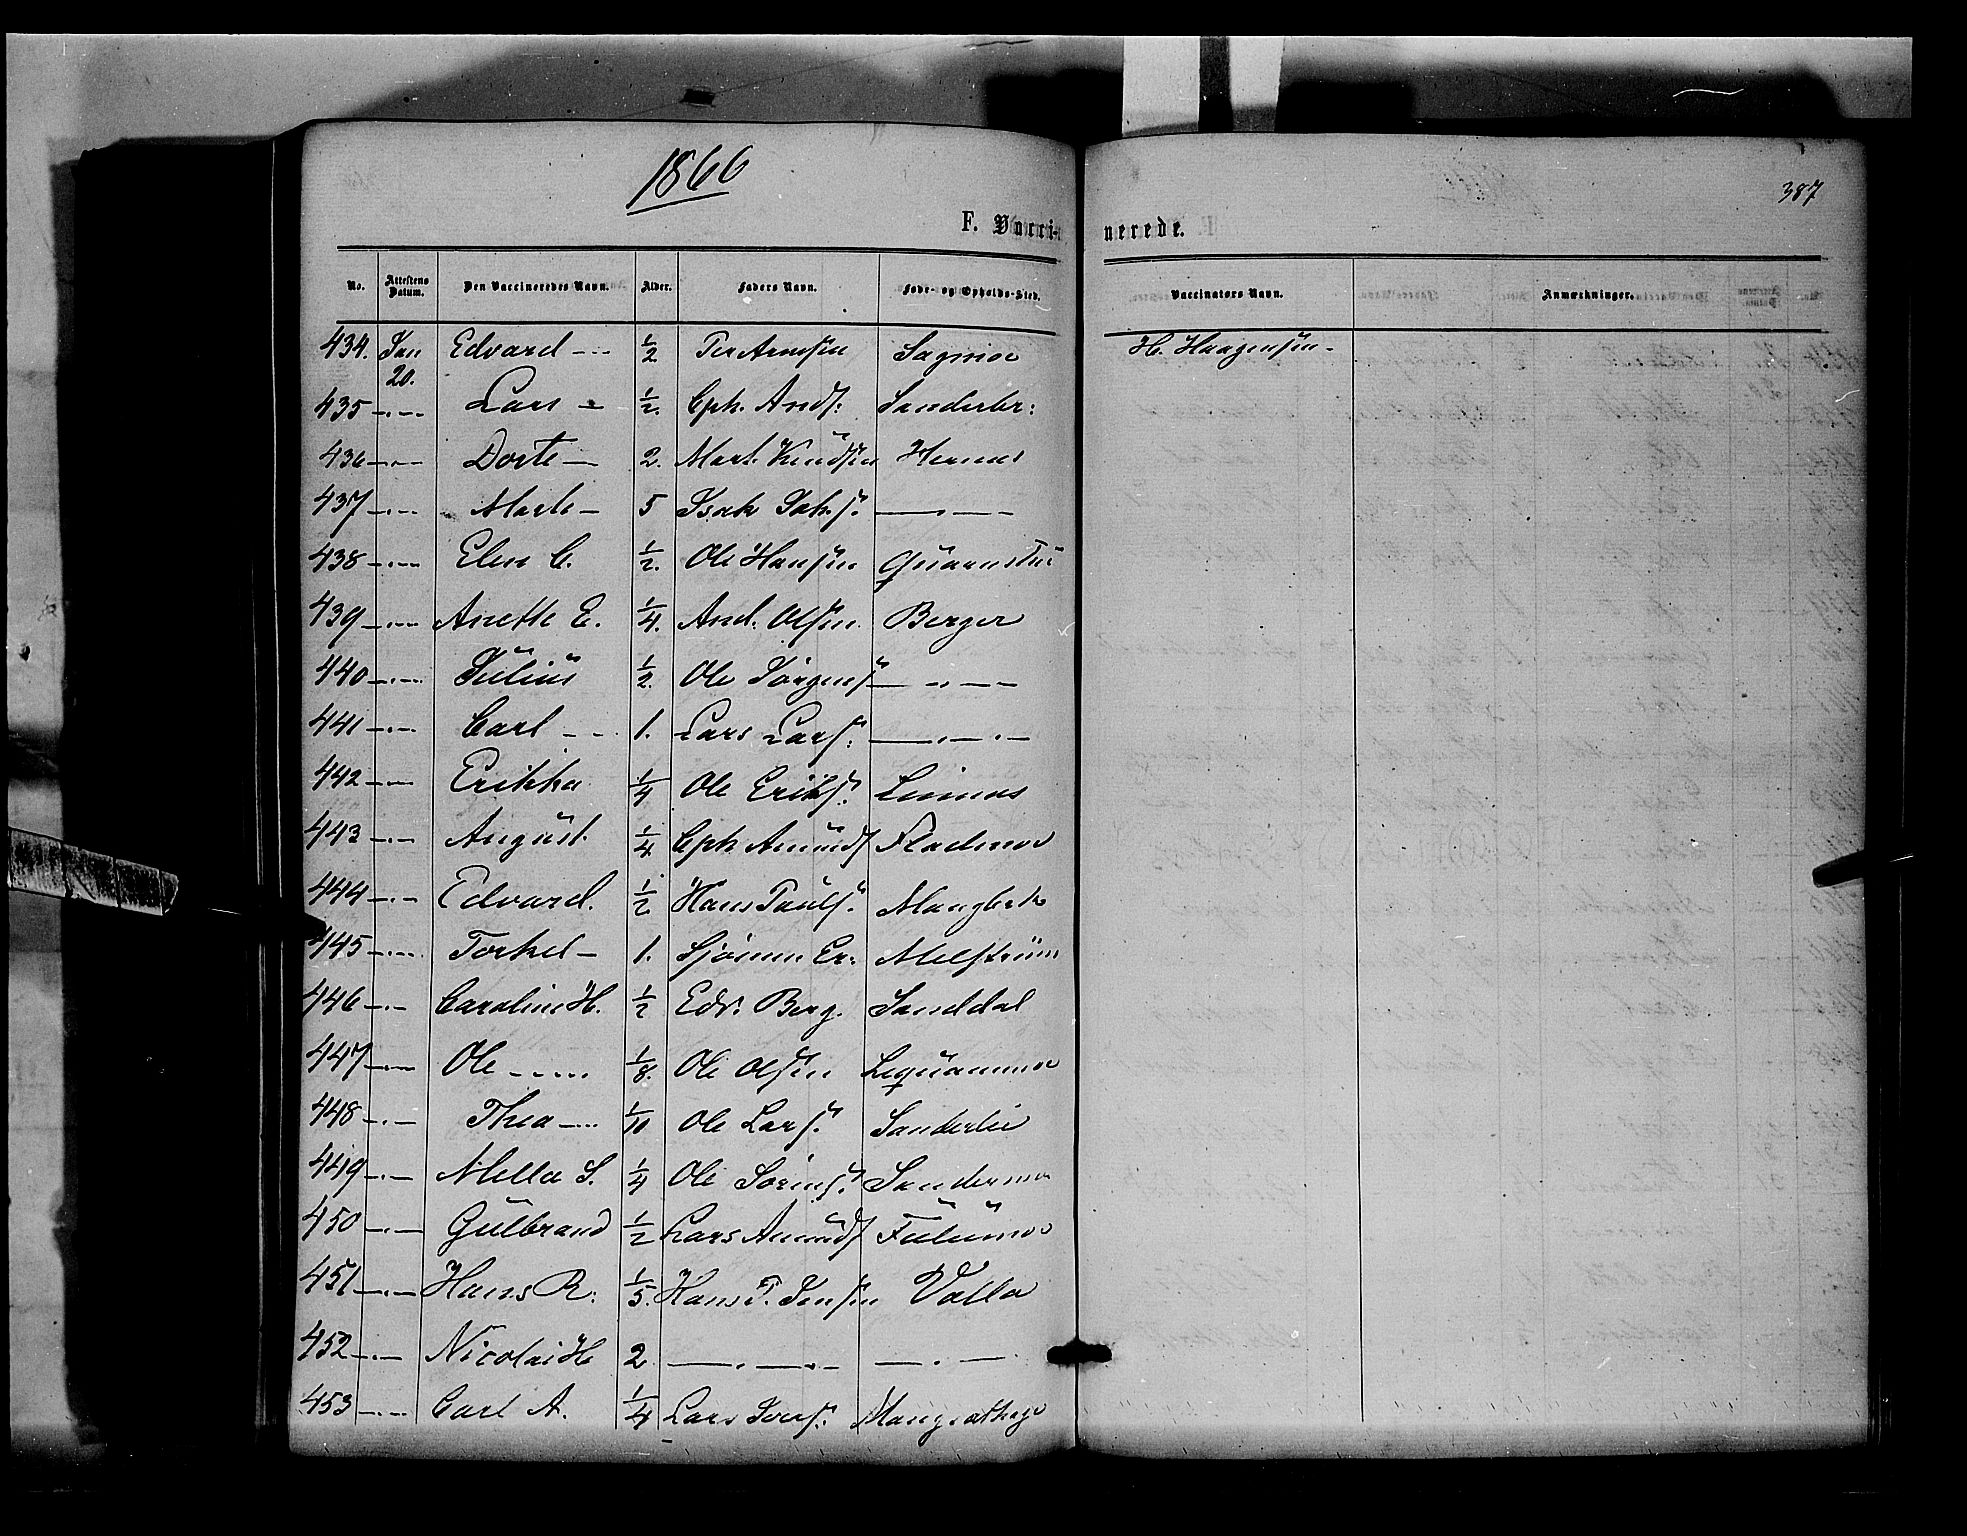 1866
387
F. Vacci-nerede.
No. Attestens Datum. Den Vaccineredes Navn. Alder. Faders Navn. Føde- og Opholds-Sted. Vaccinators Navn. Anmærkninger.
434. Jan 20. Edvard - - - 1/2 Per Arnesen Sagmoe H. Haagensen -
435 -"- Lars - 1/2. Cph. Ands: Sanderbr:
436 -"- Dorte - 2. Mart. Knudsen Hernes
437 -"- Marte - 5 Isak Joh.s. -"-
438 -"- Elen C. 1/2. Ole Hansen Quarnstu
439 -"- Anette E. 1/4. And. Olsen Berger
440 -"- Julius 1/2. Ole Jørgens -"-
441 -"- Carl - - 1. Lars Lars: -"-
442 -"- Erikka 1/4 Ole Eriks.
443 -"- August. 1/4 Cph Amunds Flademoe
444 -"- Edvard. 1/2 Hans Pauls. Mangbek
445 -"- Torkel - 1. Er: Melstrüm
446 -"- Caroline H. 1/2 Edv. Berg. Sanddal
447 -"- Ole - - - 1/8. Ole Olsen
448 -"- Thea - - - 1/10 Ole Lars. Sanderlie
449 -"- Mella S. 1/4 Ole Sørens. Sandermo
450 -"- Gulbrand 1/2 Lars Amunds Fulumoe
451 -"- Hans R. 1/5. Hans P. Jensen Valla
452 -"- Nicolai H 2 -"- -"-
453 -"- Carl A. 1/4 Lars Ivers.